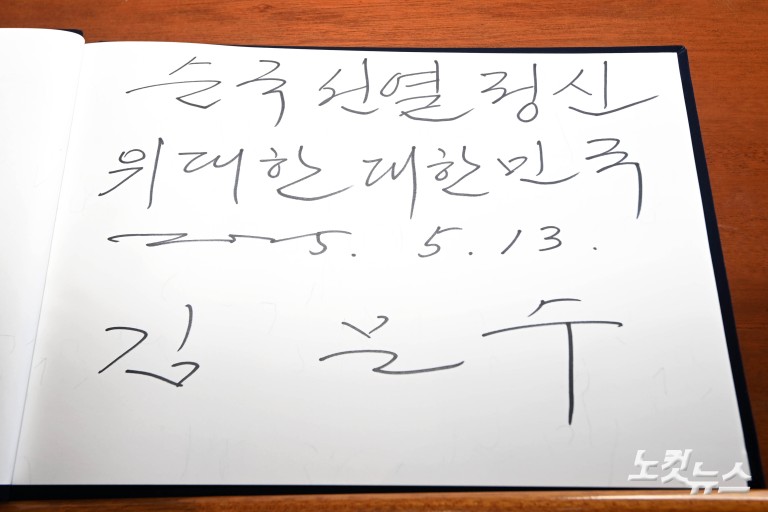 순국선열 정신
위대한 대한민국
2025. 5. 13.
김 문 수
노컷뉴스